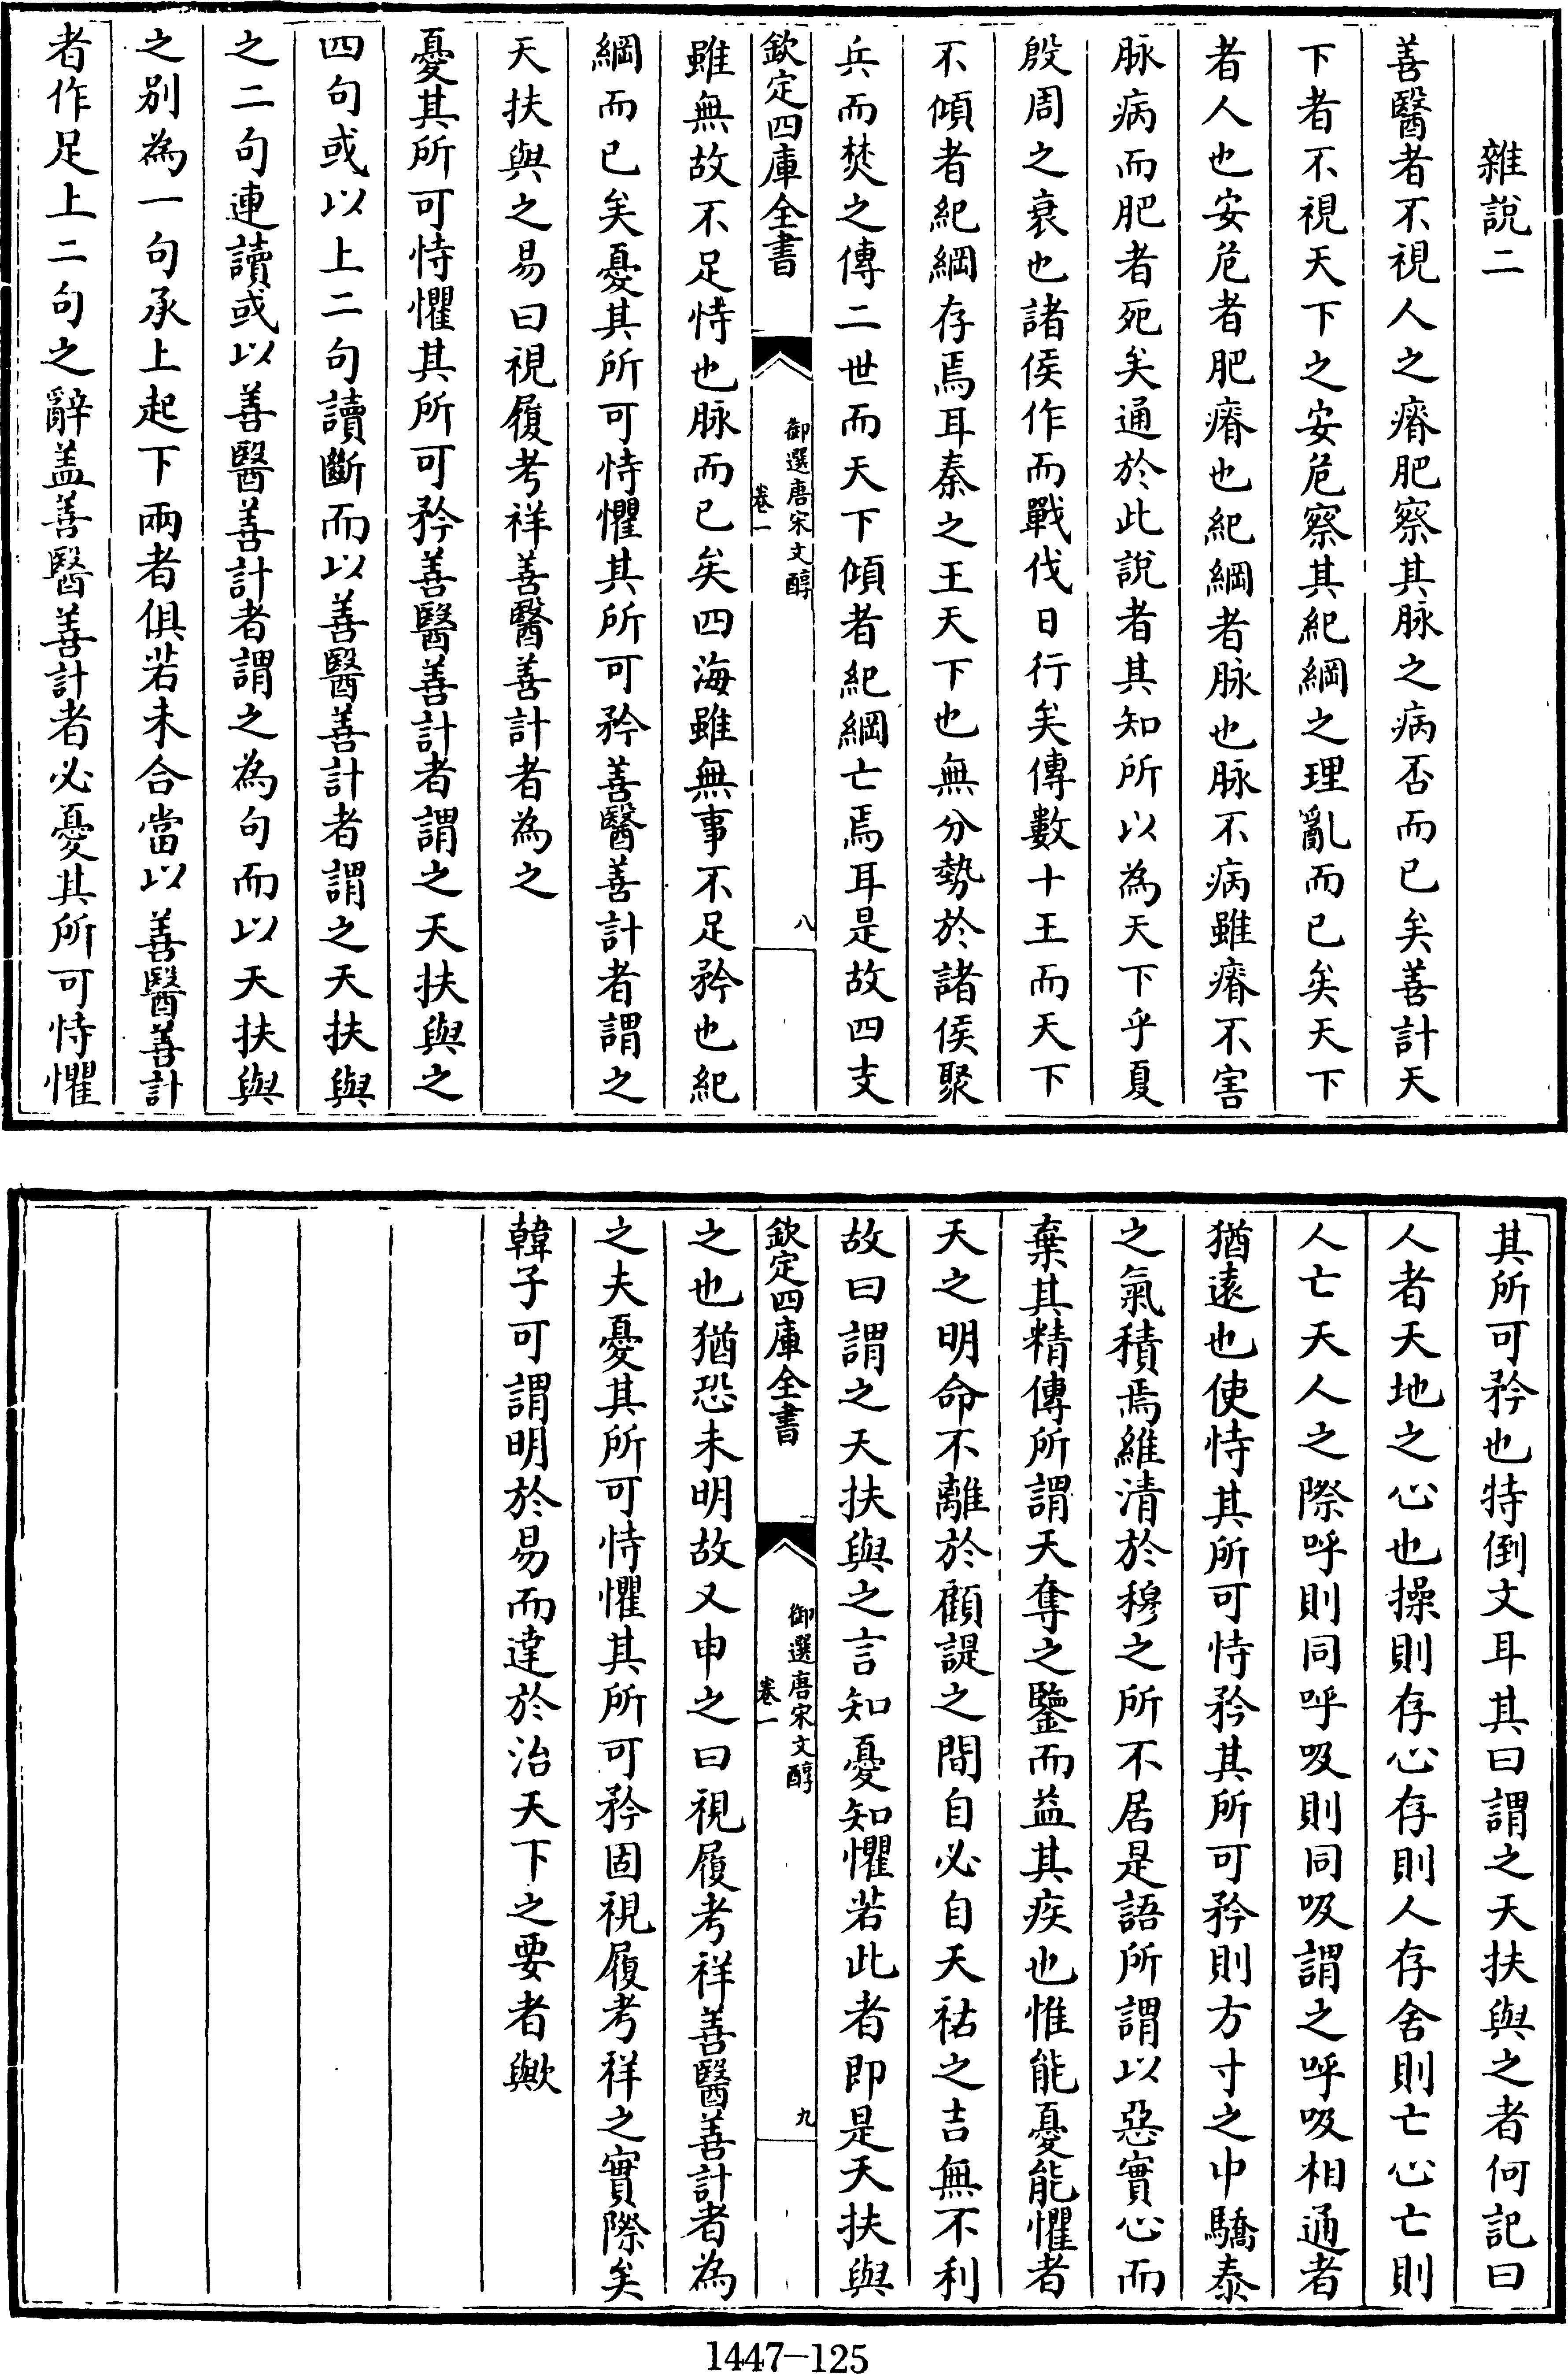 雜說二
善醫者不視人之瘠肥察其脉之病否而已矣善計天
下者不視天下之安危察其紀綱之理亂而已矣天下
者人也安危者肥瘠也紀綱者脉也脉不病雖瘠不害
脉病而肥者死矣通於此說者其知所以為天下乎夏
殷周之衰也諸侯作而戰伐日行矣傳數十王而天下
不傾者紀綱存焉耳秦之王天下也無分勢於諸侯聚
兵而焚之傳二世而天下傾者紀綱亡焉耳是故四支
欽定四庫全書
御選唐宋文醇
卷一
八
雖無故不足恃也脉而已矣四海雖無事不足矜也紀
綱而已矣憂其所可恃懼其所可矜善醫善計者謂之
天扶與之易曰視履考祥善醫善計者為之
憂其所可恃懼其所可矜善醫善計者謂之天扶與之
四句或以上二句讀斷而以善醫善計者謂之天扶與
之二句連讀或以善醫善計者謂之為句而以天扶與
之別為一句承上起下兩者俱若未合當以善醫善計
者作足上二句之辭盖善醫善計者必憂其所可恃懼
其所可矜也特倒文耳其曰謂之天扶與之者何記曰
人者天地之心也操則存心存則人存舍則亡心亡則
人亡天人之際呼則同呼吸則同吸謂之呼吸相通者
猶遠也使恃其所可恃矜其所可矜則方寸之中驕泰
之氣積焉維清於穆之所不居是語所謂以惡實心而
棄其精傳所謂天奪之鑒而益其疾也惟能憂能懼者
天之明命不離於顧諟之間自必自天祐之吉無不利
故曰謂之天扶與之言知憂知懼若此者即是天扶與
欽定四庫全書
御選唐宋文醇
卷一
九
之也猶恐未明故又申之曰視履考祥善醫善計者為
之夫憂其所可恃懼其所可矜固視履考祥之實際矣
韓子可謂明於易而達於治天下之要者歟
1447-125